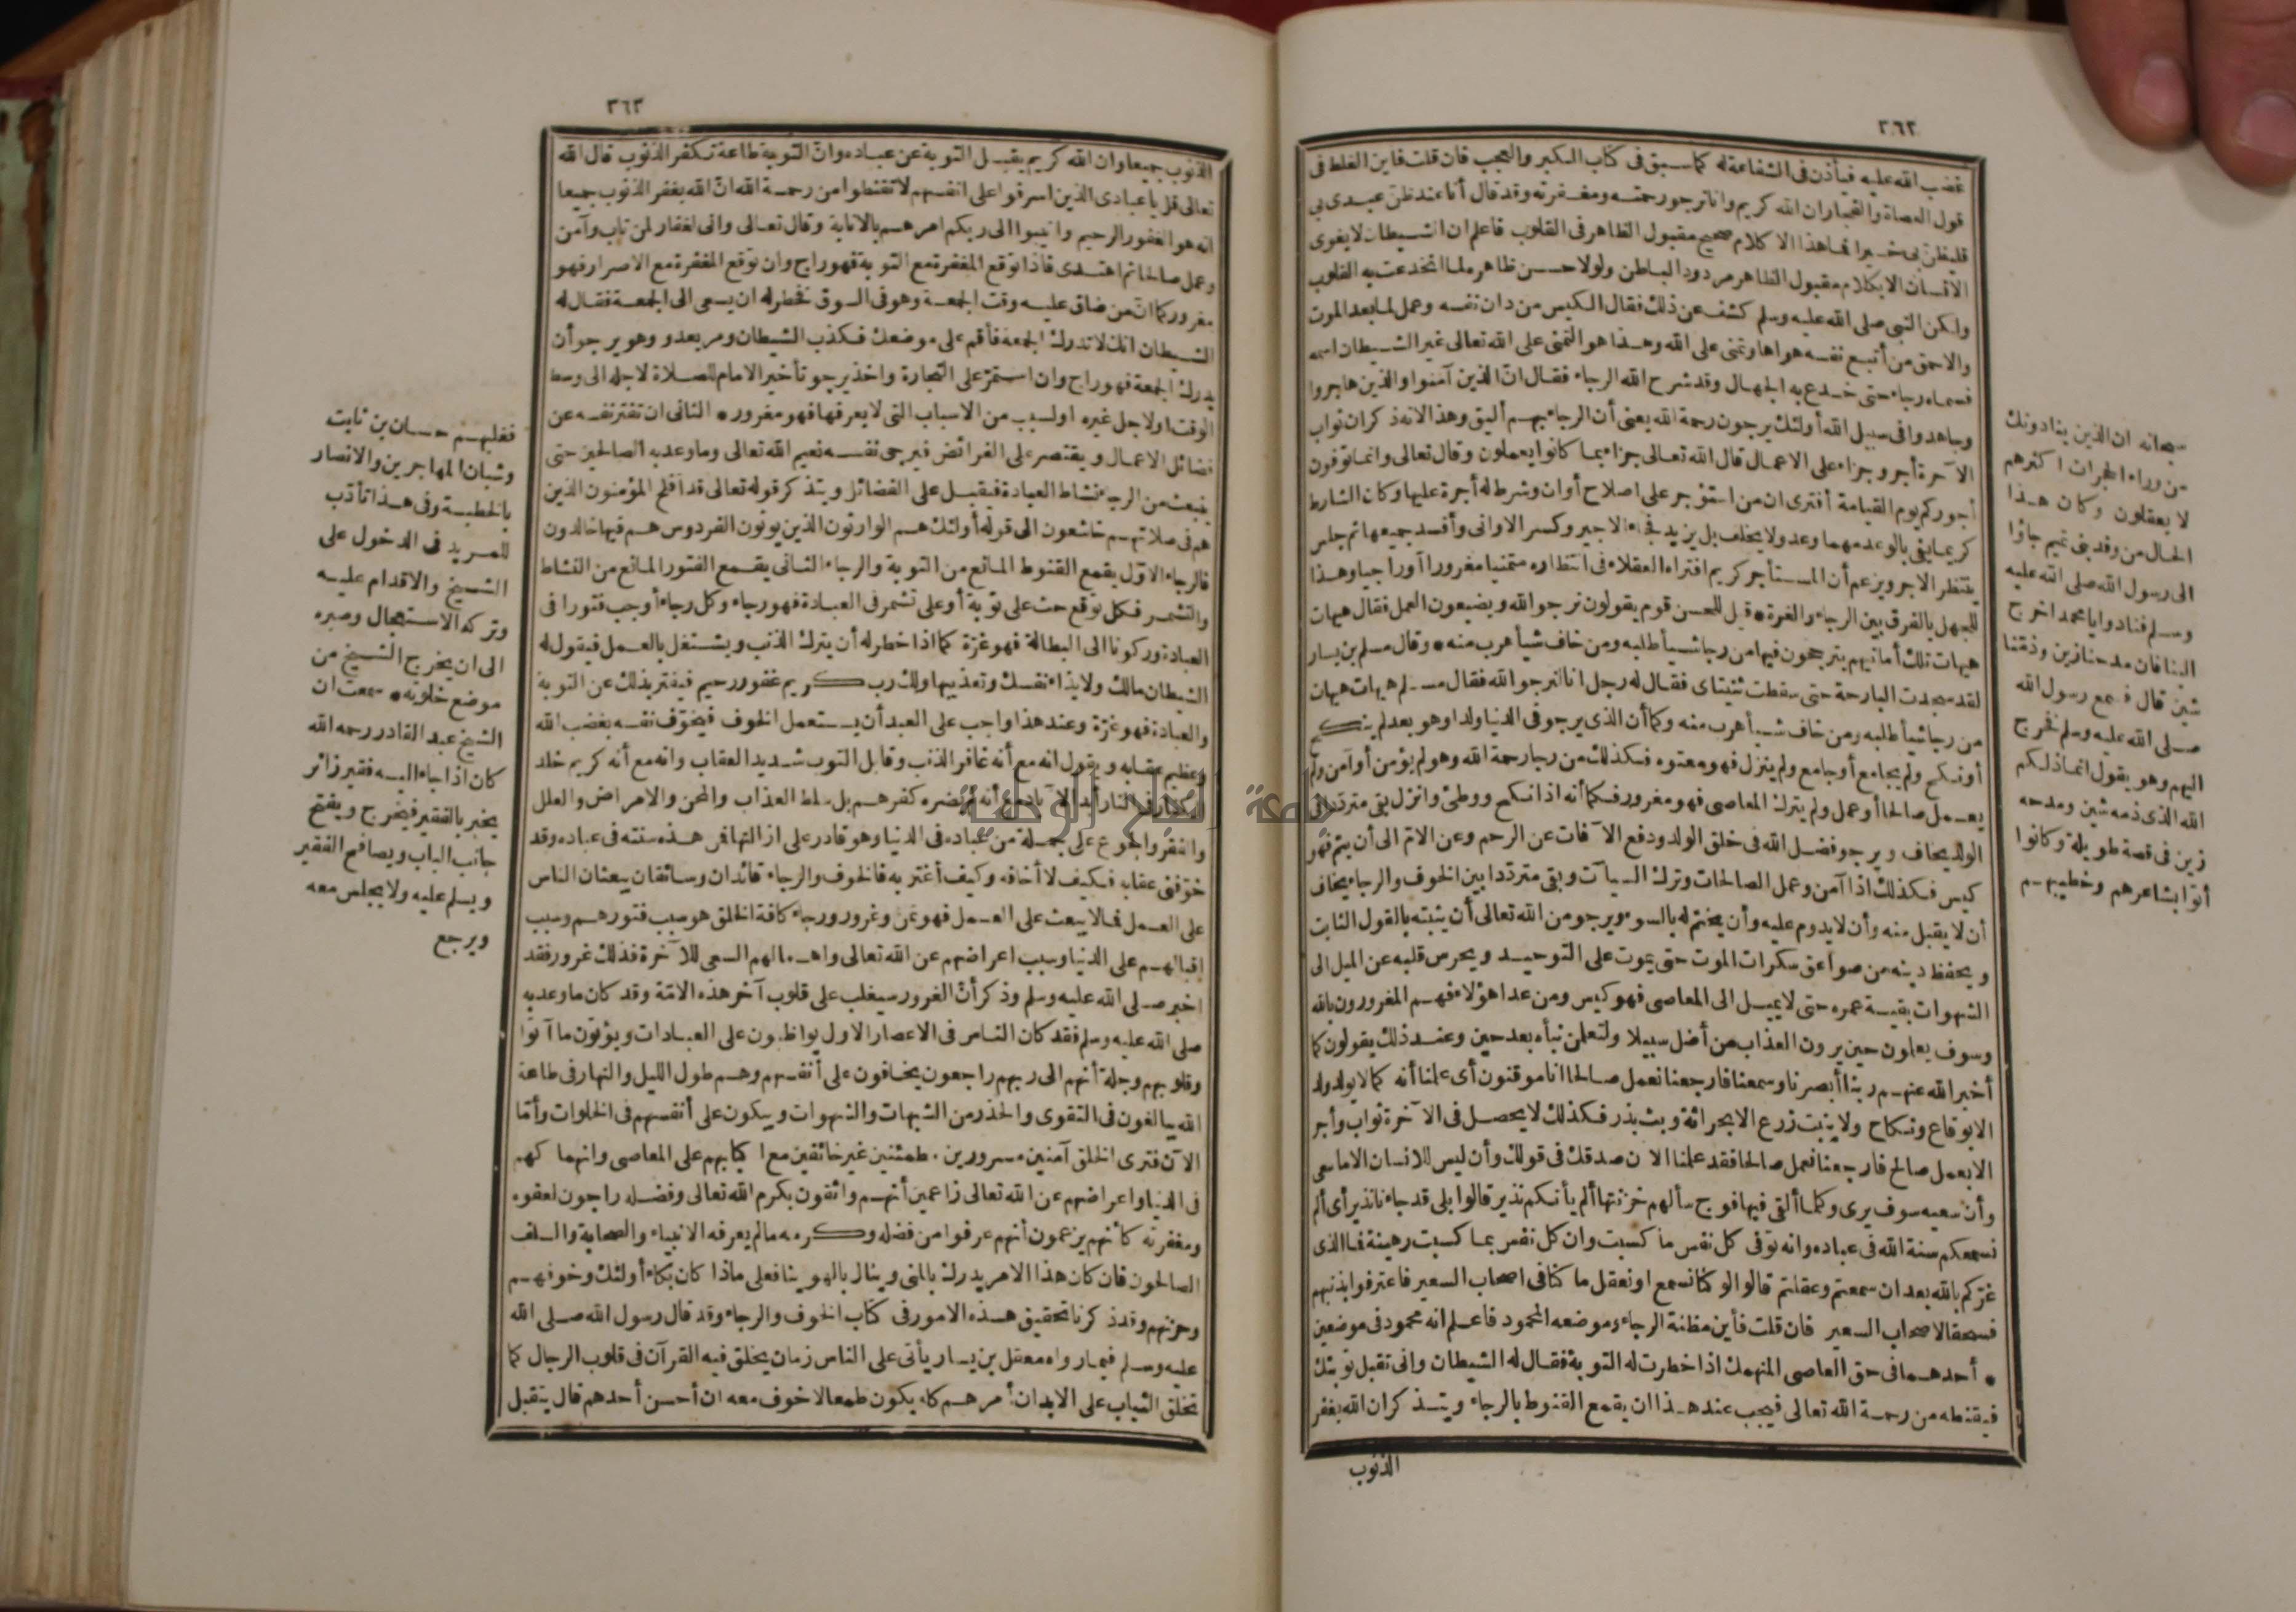 ٣٦٢
غضب الله عليه فيأذن فى الشفاعة له كما سبق فى كتاب الكبر والعجب فان قلت فاين الغلط فى
قول العصاة والفجار ان الله كريم وانا نرجو رحمته ومغفرته وقد قال أنا عند ظن عبدى بى
فليظن بى خيرا فما هذا الا كلام صحيح مقبول الظاهر فى القلوب فاعلم ان الشيطان لا يغوى
الانسان الا بكلام مقبول الظاهر مردود الباطن ولولا حسن ظاهره لما انخدعت به القلوب
ولكن النبى صلى الله عليه وسلم كشف عن ذلك فقال الكيس من دان نفسه وعمل لما بعد الموت
والاحمق من أتبع نفسه هواها وتمنى على الله وهذا هو التمنى على الله تعالى غير الشيطان اسمه
فسماه رجاء حتى خدع به الجهال وقد شرح الله الرجاء فقال ان الذين آمنوا والذين هاجروا
وجاهدوا فى سبيل الله أولئك يرجون رحمة الله يعنى أن الرجاء بهم أليق وهذا لانه ذكر ان ثواب
الآخرة أجر وجزاء على الاعمال قال الله تعالى جزاء بما كانوا يعملون وقال تعالى وانما توفون
أجوركم يوم القيامة أفترى ان من استؤجر على اصلاح أوان وشرط له أجرة عليها وكان الشارط
كريما يفى بالوعد مهما وعد ولا يخلف بل يزيد فجاء الاجير وكسر الاوانى وأفسد جميعها ثم جلس
ينتظر الاجر ويزعم أن المستأجر كريم افتراه العقلاء فى انتظاره متمنيا مغرورا أو راجيا وهذا
للجهل بالفرق بين الرجاء والغرة • قيل للحسن قوم يقولون نرجو الله ويضيعون العمل فقال هيهات
هيهات تلك أمانيهم يترجحون فيها من رجا شيأ طلبه ومن خاف شيأ هرب منه • وقال مسلم بن يسار
لقد سجدت البارحة حتى سقطت ثنيتاى فقال له رجل انا لنرجو الله فقال مسلم هيهات هيهات
من رجا شيأ طلبه ومن خاف شيأ هرب منه وكما أن الذى يرجو فى الدنيا ولدا وهو بعد لم ينكح
أو نكح ولم يجامع أو جامع ولم ينزل فهو معتوه فكذلك من رجا رحمة الله وهو لم يؤمن أو آمن ولم
يعمل صالحا أو عمل ولم يترك المعاصى فهو مغرور فكما أنه اذا نكح ووطئ وانزل بقى مترددا فى
الولد يخاف ويرجو فضل الله فى خلق الولد ودفع الآفات عن الرحم وعن الام الى أن يتم فهو
كيس فكذلك اذا آمن وعمل الصالحات وترك السيآت وبقى مترددا بين الخوف والرجاء يخاف
أن لا يقبل منه وأن لا يدوم عليه وأن يختم له بالسوء ويرجو من الله تعالى أن يثبته بالقول الثابت
ويحفظ دينه من صواعق سكرات الموت حتى يموت على التوحيد ويحرس قلبه عن الميل الى
الشهوات بقية عمره حتى لا يميل الى المعاصى فهو كيس ومن عدا هؤلاء فهم المغرورون بالله
وسوف يعلمون حين يرون العذاب من أضل سبيلا ولتعلمن نبأه بعد حين وعند ذلك يقولون كما
أخبر الله عنهم ربنا أبصرنا وسمعنا فارجعنا نعمل صالحا انا موقنون أى علمنا أنه كما لا يولد ولد
الا بوقاع ونكاح ولا ينبت زرع الا بحراثة وبث بذر فكذلك لا يحصل فى الآخرة ثواب وأجر
الا بعمل صالح فارجعنا نعمل صالحا فقد علمنا الان صدقك فى قولك وأن ليس للانسان الا ما سعى
وأن سعيه سوف يرى وكلما ألقى فيها فوج سألهم خزنتها ألم يأتكم نذير قالوا بلى قد جاءنا نذير أى ألم
نسمعكم سنة الله فى عباده وانه توفى كل نفس ما كسبت وان كل نفس بما كسبت رهينة فما الذى
غركم بالله بعد ان سمعتم وعقلتم قالوا لو كنا نسمع او نعقل ما كنا فى اصحاب السعير فاعترفوا بذنبهم
فسحقا لاصحاب السعير فان قلت فأين مظنة الرجاء وموضعه المحمود فاعلم انه محمود فى موضعين
• أحدهما فى حق العاصى المنهمك اذا خطرت له التوبة فقال له الشيطان وانى تقبل توبتك
فيقنطه من رحمة الله تعالى فيجب عند هذا ان يقمع القنوط بالرجاء ويتذكر ان الله يغفر
الذنوب
سبحانه ان الذين ينادونك
من وراء الحجرات اكثرهم
لا يعقلون وكان هذا
الحال من وفد بنى تميم جاؤا
الى رسول الله صلى الله عليه
وسلم فنادوا يا محمد اخرج
الينا فان مدحنا زين وذمنا
شين قال فسمع رسول الله
صلى الله عليه وسلم فخرج
اليهم وهو يقول انما ذلكم
الله الذى ذمه شين ومدحه
زين فى قصة طويلة وكانوا
أتوا بشاعرهم وخطيبهم
٣٦٣
الذنوب جميعا وان الله كريم يقبل التوبة عن عباده وان التوبة طاعة تكفر الذنوب قال الله
تعالى قل يا عبادى الذين اسرفوا على انفسهم لا تقنطوا من رحمة الله ان الله يغفر الذنوب جميعا
انه هو الغفور الرحيم وانيبوا الى ربكم امرهم بالانابة وقال تعالى وانى لغفار لمن تاب وآمن
وعمل صالحا ثم اهتدى فاذا توقع المغفرة مع التوبة فهو راج وان توقع المغفرة مع الاصرار فهو
مغرور كما ان من ضاق عليه وقت الجمعة وهو فى السوق فخطر له ان يسعى الى الجمعة فقال له
الشيطان انك لا تدرك الجمعة فأقم على موضعك فكذب الشيطان ومر يعدو وهو يرجو أن
يدرك الجمعة فهو راج وان استمر على التجارة واخذ يرجو تأخير الامام للصلاة لاجله الى وسط
الوقت او لاجل غيره او لسبب من الاسباب التى لا يعرفها فهو مغرور • الثانى ان تفتر نفسه عن
فضائل الاعمال ويقتصر على الفرائض فيرجى نفسه نعيم الله تعالى وما وعد به الصالحين حتى
ينبعث من الرجاء نشاط العبادة فيقبل على الفضائل ويتذكر قوله تعالى قد افلح المؤمنون الذين
هم فى صلاتهم خاشعون الى قوله أولئك هم الوارثون الذين يرثون الفردوس هم فيها خالدون
فالرجاء الاول يقمع القنوط المانع من التوبة والرجاء الثانى يقمع الفتور المانع من النشاط
والتشمر فكل توقع حث على توبة أو على تشمر فى العبادة فهو رجاء وكل رجاء أوجب فتورا فى
العبادة وركونا الى البطالة فهو غرة كما اذا خطر له أن يترك الذنب ويشتغل بالعمل فيقول له
الشيطان مالك ولايذاء نفسك وتعذيبها ولك رب كريم غفور رحيم فيفتر بذلك عن التوبة
والعبادة فهو غرة وعند هذا واجب على العبد أن يستعمل الخوف فيخوف نفسه بغضب الله
وعظيم عقابه ويقول انه مع أنه غافر الذنب وقابل التوب شديد العقاب وانه مع أنه كريم خلد
الكفار فى النار أبد الآباد مع أنه لم يضره كفرهم بل سلط العذاب والمحن والامراض والعلل
والفقر والجوع على جملة من عباده فى الدنيا وهو قادر على ازالتها فمن هذه سنته فى عباده وقد
خوفنى عقابه فكيف لا أخافه وكيف أغتر به فالخوف والرجاء قائدان وسائقان يبعثان الناس
على العمل فما لا يبعث على العمل فهو تمن وغرور ورجاء كافة الخلق هو سبب فتورهم وسبب
إقبالهم على الدنيا وسبب اعراضهم عن الله تعالى واهمالهم السعى للآخرة فذلك غرور فقد
اخبر صلى الله عليه وسلم وذكر أن الغرور سيغلب على قلوب آخر هذه الامة وقد كان ما وعد به
صلى الله عليه وسلم فقد كان الناس فى الاعصار الاول يواظبون على العبادات ويؤتون ما آتوا
وقلوبهم وجلة أنهم الى ربهم راجعون يخافون على أنفسهم وهم طول الليل والنهار فى طاعة
الله يبالغون فى التقوى والحذر من الشبهات والشهوات ويبكون على أنفسهم فى الخلوات وأما
الآن فترى الخلق آمنين مسرورين مطمئنين غير خائفين مع اكبابهم على المعاصى وانهماكهم
فى الدنيا واعراضهم عن الله تعالى زاعمين أنهم واثقون بكرم الله تعالى وفضله راجون لعفوه
ومغفرته كأنهم يزعمون أنهم عرفوا من فضله وكرمه ما لم يعرفه الانبياء والصحابة والسلف
الصالحون فان كان هذا الامر يدرك بالمنى وينال بالهوينا فعلى ماذا كان بكاء أولئك وخوفهم
وحزنهم وقد ذكرنا تحقيق هذه الامور فى كتاب الخوف والرجاء وقد قال رسول الله صلى الله
عليه وسلم فيما رواه معقل بن يسار يأتى على الناس زمان يخلق فيه القرآن فى قلوب الرجال كما
تخلق الثياب على الابدان أمرهم كله يكون طمعا لا خوف معه ان أحسن أحدهم قال يتقبل
فغلبهم حسان بن ثابت
وشبان المهاجرين والانصار
بالخطبة وفى هذا تأدب
للمريد فى الدخول على
الشيخ والاقدام عليه
وتركه الاستعجال وصبره
الى ان يخرج الشيخ من
موضع خلوته • سمعت ان
الشيخ عبد القادر رحمه الله
كان اذا جاء اليه فقير زائر
يخبر بالفقير فيخرج ويفتح
جانب الباب ويصافح الفقير
ويسلم عليه ولا يجلس معه
ويرجع
جامعة النجاح الوطنية